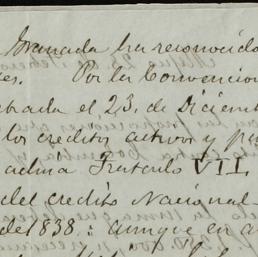 Granada ha reconocido
es. Por la Convencion
bada el 23, de Diciem
los creditos activos y
VII.
del credito Nacional
de 1838.: aunque en a